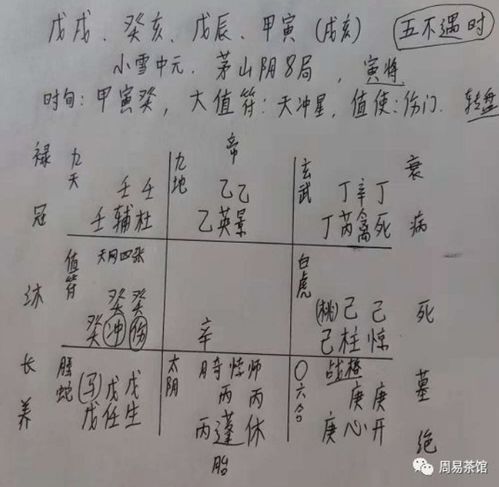 戊戌、癸亥、戊辰、甲寅（戌亥） 五不遇时
小雪中元．茅山阴8局，寅将
时旬：甲寅癸，大值符：天冲星，值使：伤门．转盘
禄 九天 九地 帝 玄武 衰
壬 壬 乙乙 丁 辛 丁
冠 壬 辅 杜 乙英景 丁芮禽死 病
值符 天网四张 白虎
沐 癸 癸 己 己 死
癸冲伤 辛 己柱惊
长 螣蛇 太阴 六合 战格 墓
(马)戊 戊 丙 丙 庚 庚
养 戊任生 丙蓬休 庚心开 绝
胎
周易茶馆